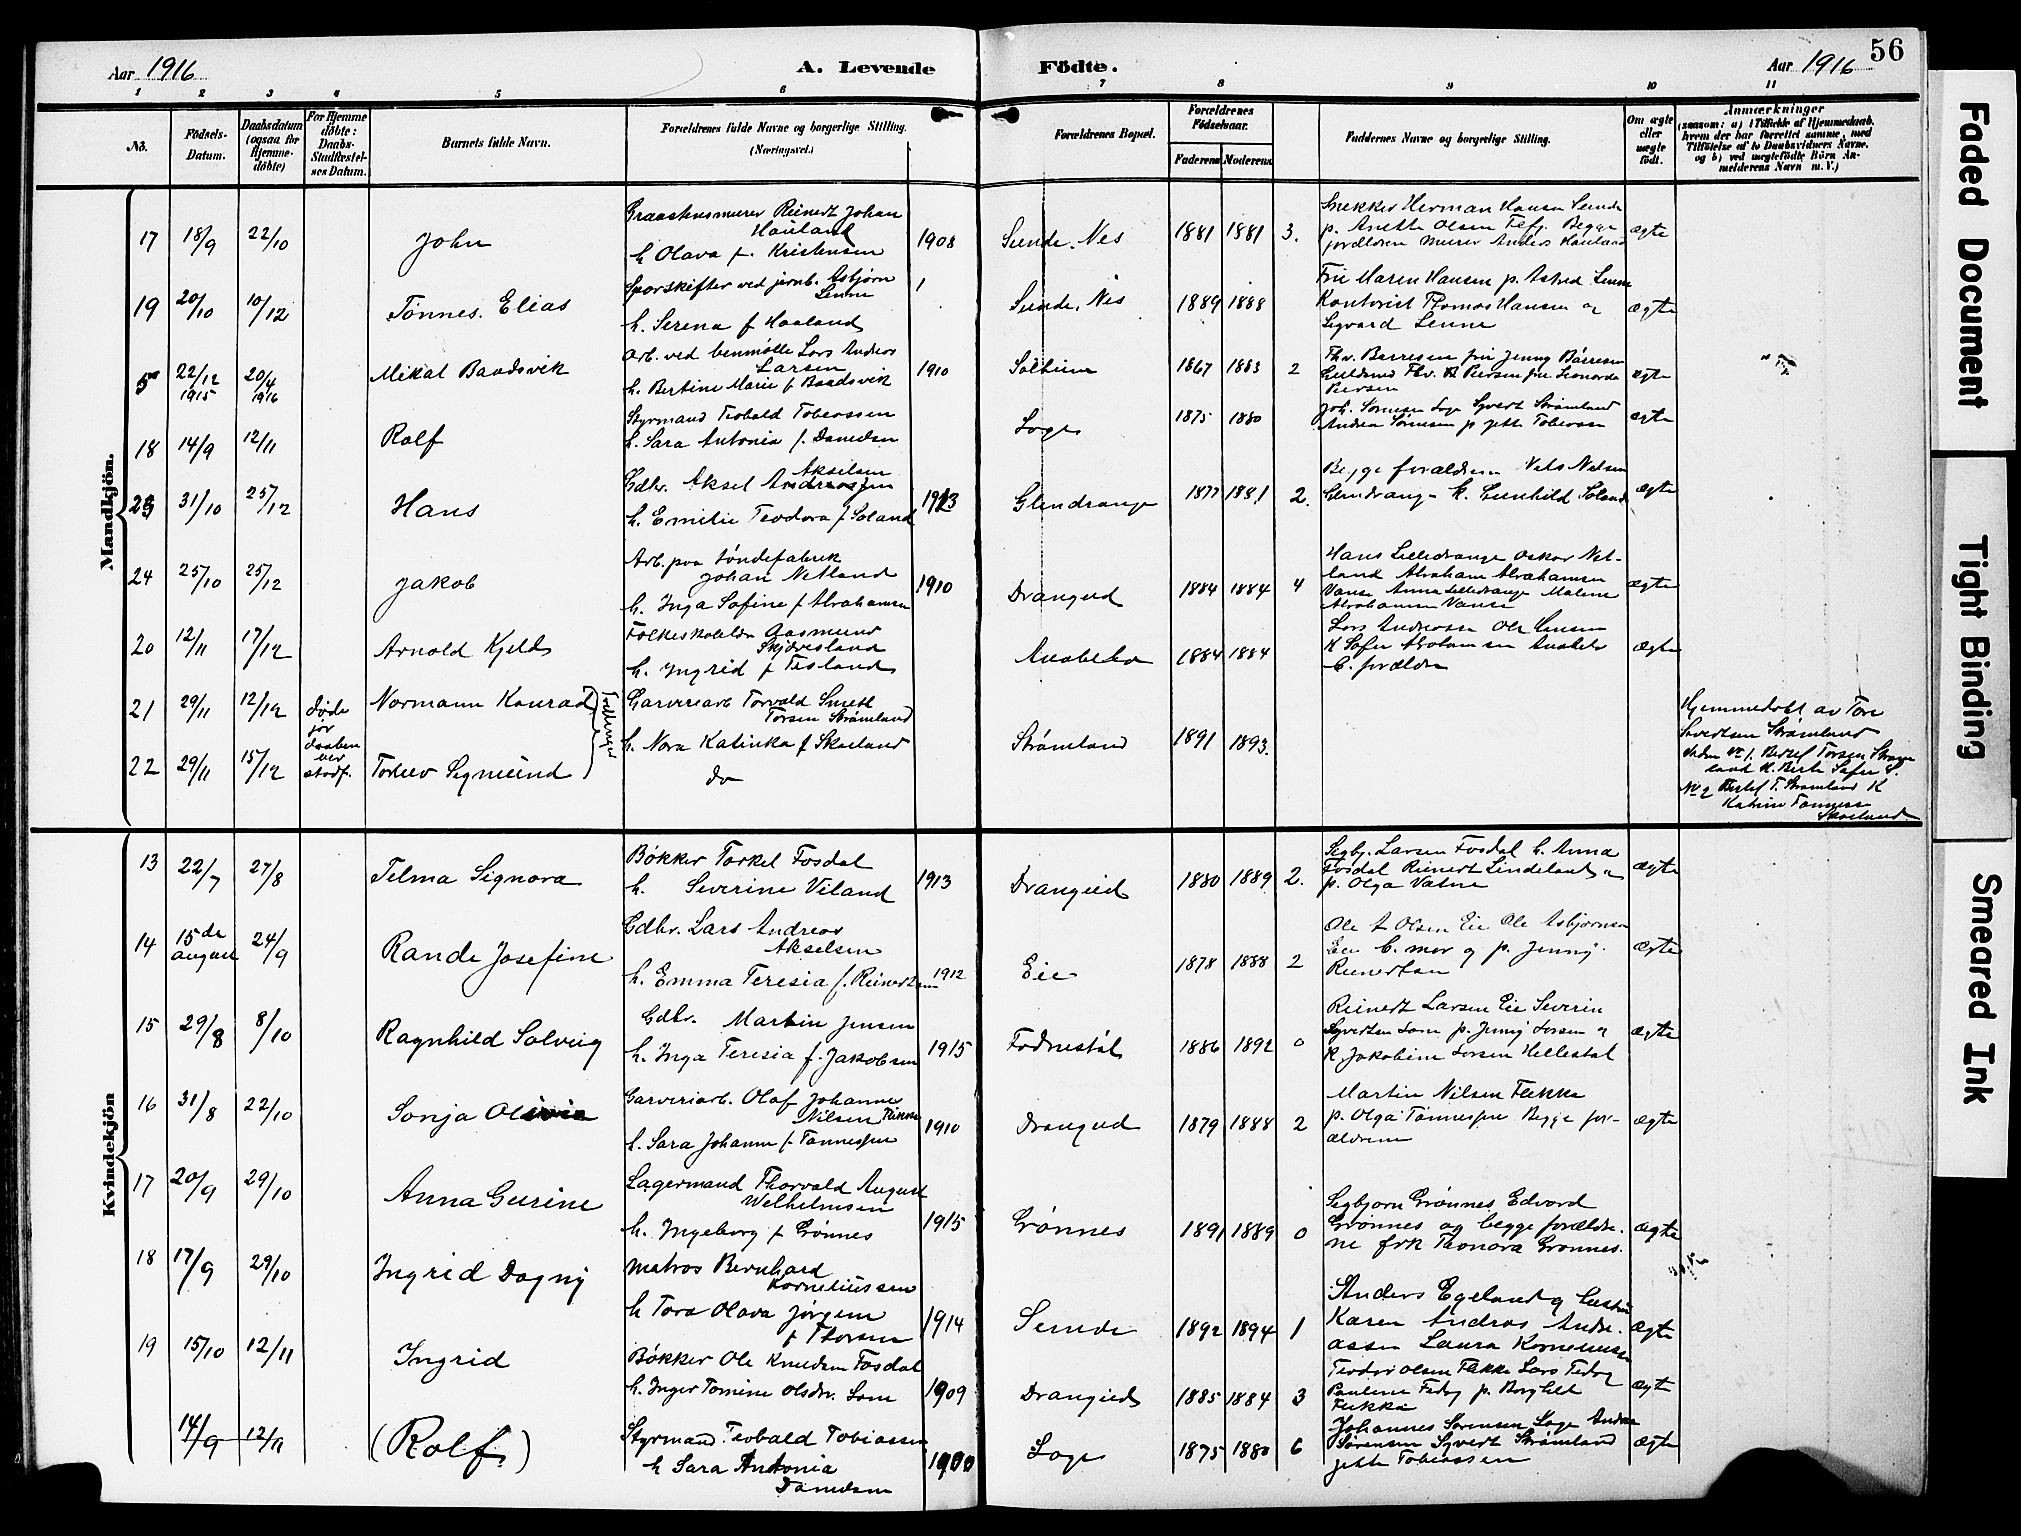 56
Aar 1916
A. Levende
Födte.
Aar 1916
1 2 3 4 5 6 7 8 9 10 11
No.
Födsels-
Datum.
Daabsdatum
(ogsaa for
Hjemme-
döbte)
For Hjemme
döbte:
Daabs-
Stadfæstel-
ses Datum.
Barnets fulde Navn.
Forældrenes fulde Navne og borgerlige Stilling.
(Næringsvei.)
Forældrenes Bopæl.
Forældrenes
Födselsaar.
Faderens
Moderens
Faddernes Navne og borgerlige Stilling.
Om ægte
eller
uægte
födt.
Anmærkninger
(saasom: a) i Tilfælde af Hjemmedaab,
hvem der har forrettet samme, med
Tilföielse af to Daabsvidners Navne,
og b) ved uægtefödte Börn An-
melderens Navn m. V.)
Mandkjön.
17 18/9 22/10 John
Graastensmurer Reinert Johan
Hauland
h. Olava f. Kristensen 1908
Sunde, Nes 1881 1881 3.
Snekker Herman Hansen Sunde
p. Anette Olsen Begge
forældren Murer Anders Hauland
ægte
19 20/10 10/12 Tönnes Elias
Sporskifter ved jernb. Asbjørn
Lunne
h. Serena f Haaland
Sunde, Nes 1889 1888
Fru Maren Hansen p. Astrid Lunne
Kontorist Thomas Hansen og
Sigvard Lunne
ægte
5 22/12 1915 20/4 1916 Mikal Baadsvik
Arb. ved benmølle Lars Andreas
Larsen
h. Bertine Marie f Baadsvik 1910
Solheim 1867 1883 2
fru Jenny Børresen
ægte
18 14/9 12/11 Rolf
Styrmand Teobald Tobiassen
h. Sara Antonia f. Danielsen
Loge 1875 1880
Joh. Sørensen Loge Syvert Strømland
Andrea Sørensen p Jette Tobiassen
ægte
23 31/10 25/12 Hans
Gdbr. Aksel Andreas Akselsen
h. Emilie Teodora f Soland 1913
Glendrange 1877 1881 2.
Begge forældrene Nels Nelsen
Glendrange k. Gunhild Soland
ægte
24 25/10 25/12 Jakob
Arb. paa tøndefabrik
Johan Netland
h. Inga Sofine f Abrahamsen 1910
Drangeid 1884 1884 4
Hans Lilledrange Oskar Net-
land Abraham Abrahamsen
Vanse Anna Lilledrange Malene
Abrahamsen Vanse
ægte
20 12/11 17/12 Arnold Kjeld
Folkeskolelær Aasmund
Skjævesland
h. Ingrid f Fisland
Anabelø 1884 1884
Lars Andreassen Ole Hansen
K Sofie Abrahamsen Anabelø
B. forældre
ægte
21 29/11 12/12 Normann Konrad
døde
før
daaben
blev
stadf.
Tvillinger
Garveriarb Torvald Smith
Torsen Strømland
h. Nora Katinka f Skoeland
Strømland 1891 1893.
22 29/11 15/12 Torleiv Sigmund
do
Hjemmedøbt av Tore
Sivertsen Strømland
Vidne No 1. Berlef Torsen Strøm
land K. Berte Sofie S.
No 2 Berlef T. Strømland K
Katrine Tønnesse
Skoeland
Kvindekjön
13 22/7 27/8 Telma Signora
Bøkker Torkel Fosdal
h. Severine Veland 1913
Drangeid 1880 1889 2.
Sigbj. Larsen Fosdal h. Anna
Fosdal Reinert Lindeland og
p. Olga Vatne
ægte
14 15de august 24/9 Rande Josefine
Gdbr. Lars Andreas
Akselsen
h. Emma Teresia f. Reinertsen 1912
Eie 1878 1888 2
Ole A Olsen Eie Ole Asbjørnsen
Eie B. mor og p. Jenny
Reinertsen
ægte
15 29/8 8/10 Ragnhild Solveig
Gdbr. Martin Jensen
h. Inga Teresia f. Jakobsen 1915
Fodnestøl 1886 1892 0
Reinert Larsen Eie Severin
Syvertsen Lom p. Jenny Torsen og
K Jakobine Torsen Hellestøl
ægte
16 31/8 22/10 Sonja Olivia
Garveriarb. Olaf Johannes
Nilsen Flikka
h. Sara Johanne f. Tønnessen 1910
Drangeid 1879 1888 2
Martin Nilsen Flekke
p. Olga Tønnessen Begge for-
ældrene
ægte
17 20/9 29/10 Anna Gurine
Lagermand Thorvald August
Welhelmsen
h. Ingeborg f Grønnes 1915
Grønnes 1891 1889 0
Sigbjørn Grønnes Edvard
Grønnes og begge forældre-
ne frk Thonora Grønnes.
ægte
18 17/9 29/10 Ingrid Dagny
Matros Bernhard
Korneliussen
h Tora Olava Jörgine
f Thorsen 1914
Sunde 1892 1894 1
Anders Egeland og hustru
Karen Andreas Andre-
assen Laura Korneliussen
ægte
19 15/10 12/11 Ingrid
Bøkker Ole Knudsen Fosdal
h. Inger Tomine Olsdtr. Lom 1909
Drangeid 1885 1884 3
Teodor Olsen Flikke Lars Fedog
Pauline Fedog p. Borghild
Flikke
ægte
14/9 12/11 (Rolf)
Styrmand Teobald Tobiassen
h Sara Antonia
Danielsen 1900
Loge 1875 1880 6
Johannes Sørensen Loge Andrea
Sørensen Syvert Strømland
Jette Tobiassen
ægte
Faded Document
Tight Binding
Smeared Ink